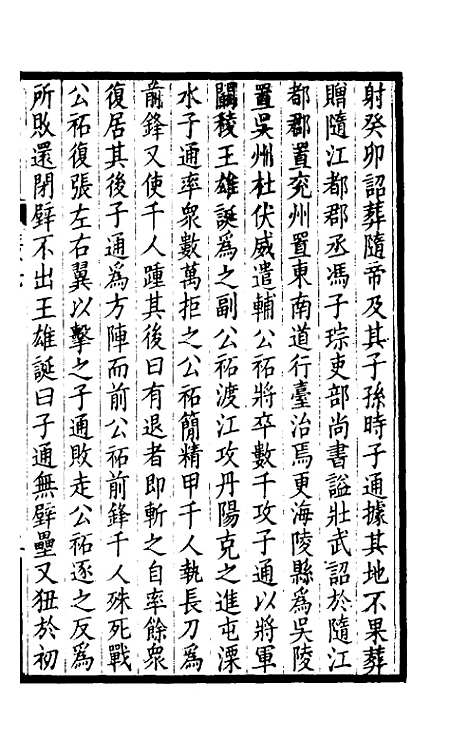 射癸卯詔葬隨帝及其子孫時子通據其地不果葬
贈隨江都郡丞馮子琮吏部尚書謚壯武詔於隨江
都郡置兖州置東南道行臺治焉更海陵縣爲吳陵
置吳州杜伏威遣輔公祏將卒數千攻子通以將軍
闞稜王雄誕爲之副公祏渡江攻丹陽克之進屯溧
水子通率衆數萬拒之公祏簡精甲千人執長刀爲
前鋒又使千人踵其後曰有退者即斬之自率餘衆
復居其後子通爲方陣而前公祏前鋒千人殊死戰
公祏復張左右翼以擊之子通敗走公祏逐之反爲
所敗還閉壁不出王雄誕曰子通無壁壘又狃於初